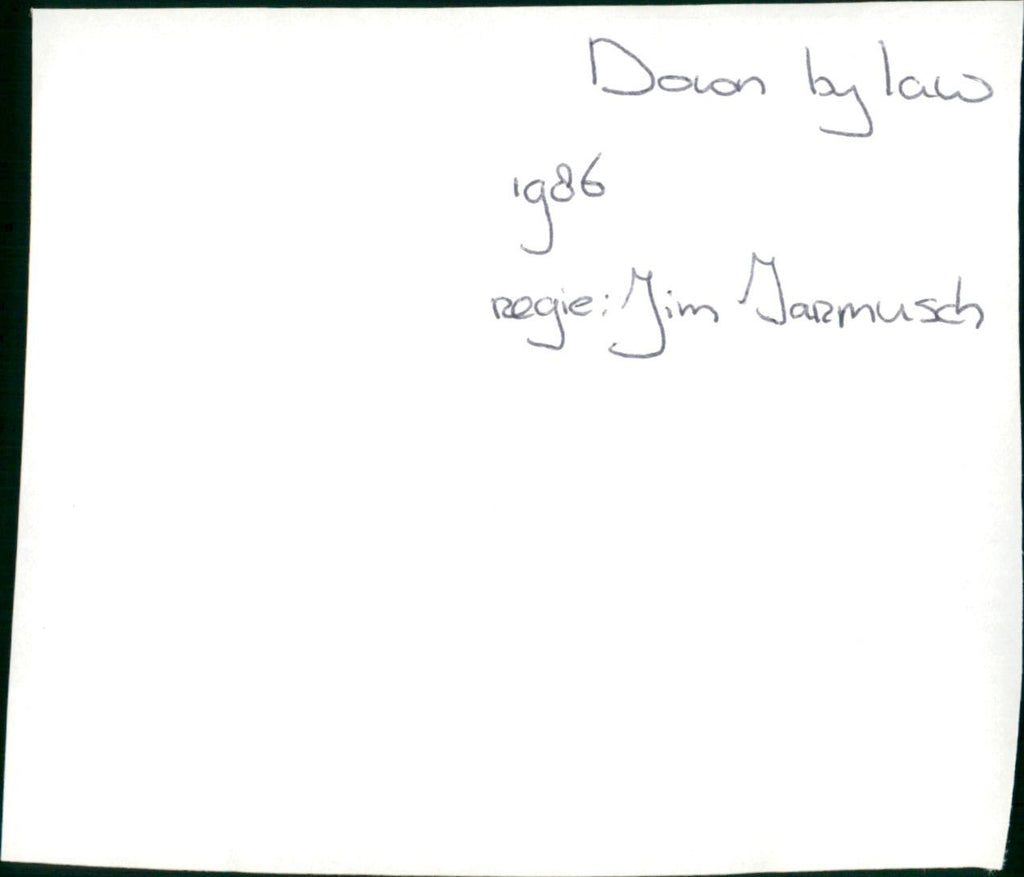 Down by law
1986
regie: Jim Jarmusch